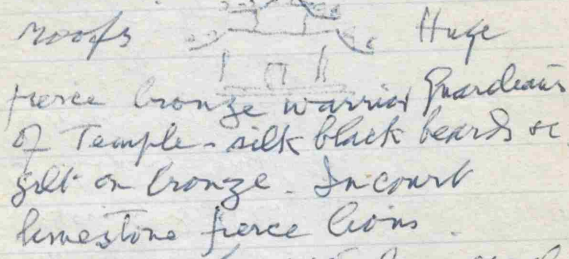 roofs Huge
fierce bronze warrior Guardians
of Temple - silk black beards &c
gilt on bronze. In court
limestone fierce lions.